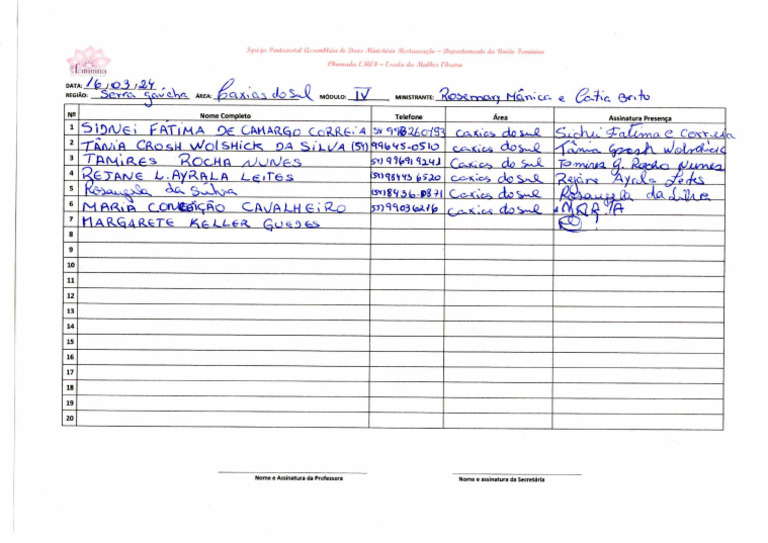 Igreja Pentecostal Assembleia de Deus Ministério Restauração – Departamento da União Feminina
Chamada EMEO – Escola da Mulher Obreira
feminina
DATA: 16/03/24
REGIÃO: Serra gaúcha ÁREA: Caxias do Sul MÓDULO: IV MINISTRANTE: Rosemary Mânica e Catia Brito
Nº Nome Completo Telefone Área Assinatura Presença
1 SIDNEI FÁTIMA DE CAMARGO CORREIA caxias do sul Sidnei Fatima C Correia
2 TÂNIA CROSH WOLSHICK DA SILVA (54) 99645-0510 caxias do sul Tânia Grosh
3 TAMIRES ROCHA NUNES (54) 996919241 caxias do sul Tamires G. Rocha Nunes
4 REJANE L. AYRALA LEITES (54) 984456520 caxias do sul Rejane Ayala Leites
5 Rosangela da Silva (54) 8436.0871 caxias do sul Rosangela da Silva
6 MARIA CONCEIÇÃO CAVALHEIRO 99036216 caxias do sul
7 MARGARETE KELLER GUEDES
8
9
10
11
12
13
14
15
16
17
18
19
20
Nome e Assinatura da Professora Nome e assinatura da Secretária